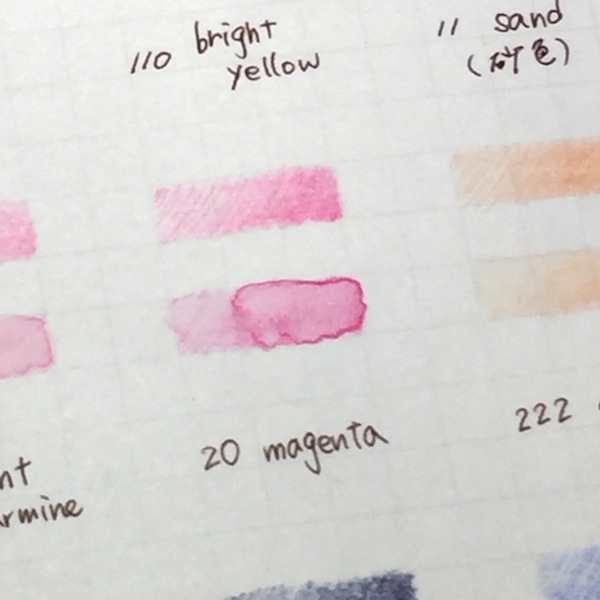 110 bright
yellow
11 sand
(砂色)
20 magenta
222